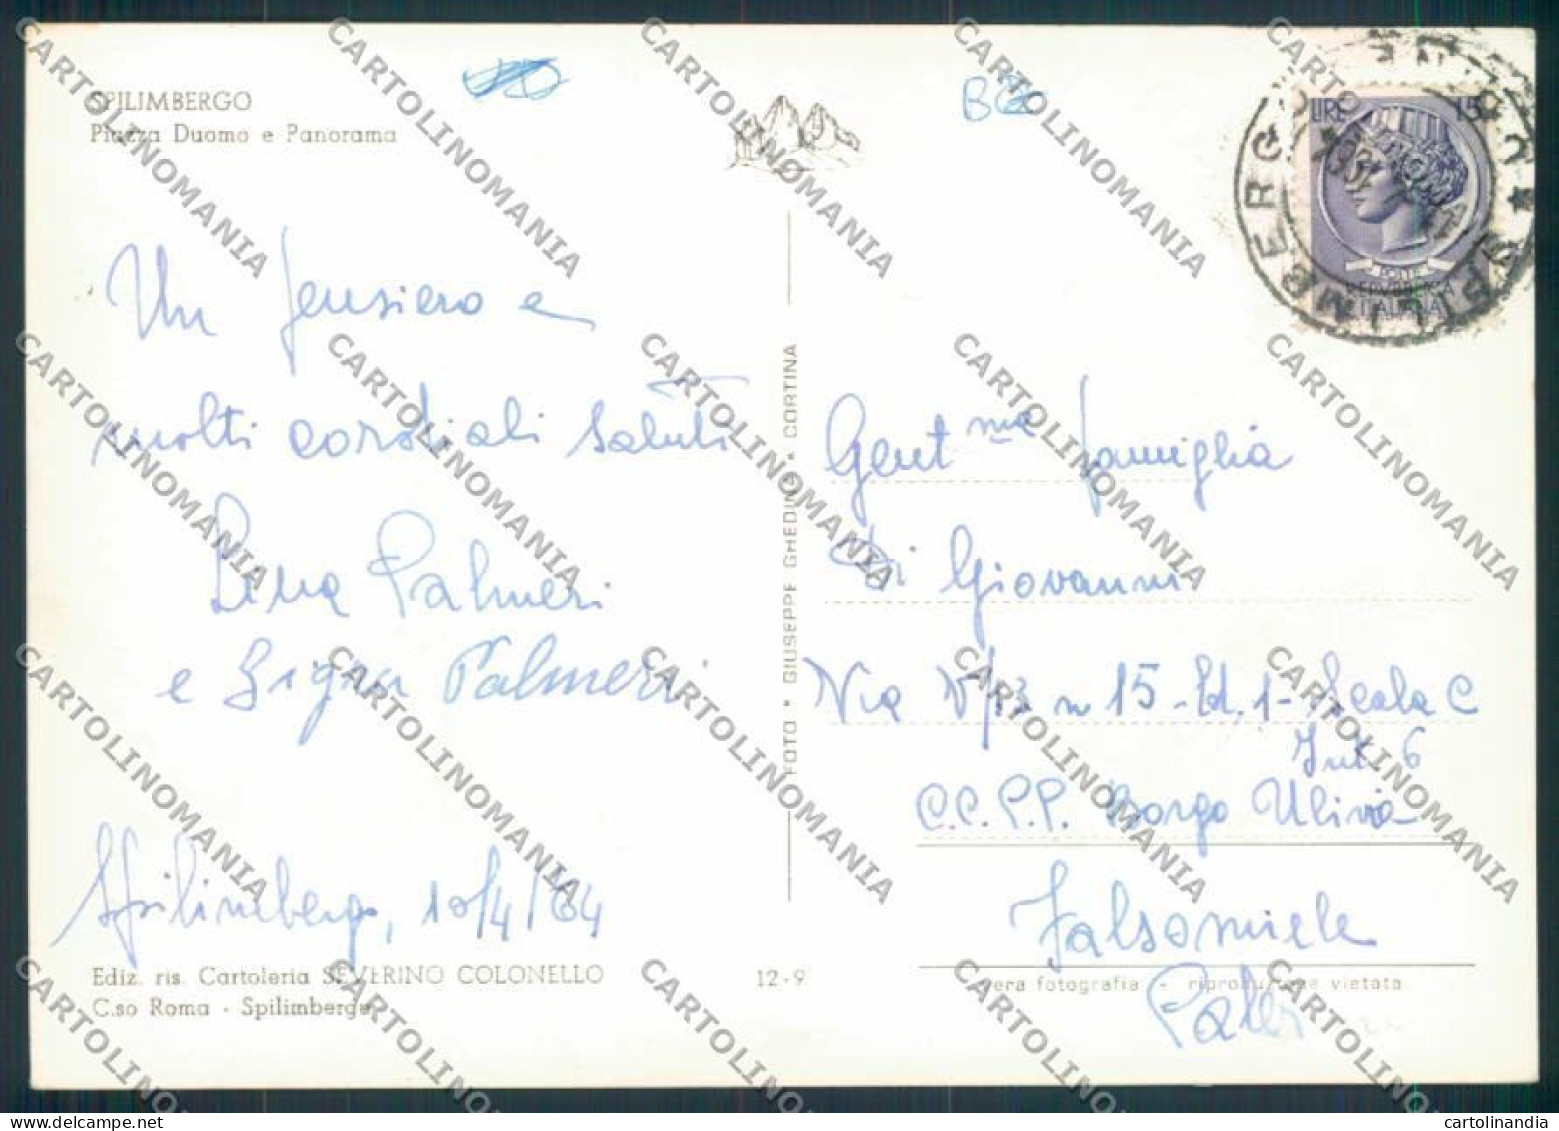 SPILIMBERGO
Piazza Duomo e Panorama
Un pensiero e
molti cordiali saluti
Lina Palmeri
e Sig.ra Palmeri
Spilimbergo, 10/4/64
Ediz. ris. Cartoleria SEVERINO COLONELLO
C.so Roma - Spilimbergo
12-9
FOTO • GIUSEPPE GHEDINA • CORTINA
LIRE 15
POSTE
REPVBBLICA
ITALIANA
SPILIMBERGO
Gent.ma famiglia
Di Giovanni
Via n 15-Ed. 1-Scala C
Int. 6
C.C.P.P. Borgo Ulivia
Falsomiele
vera fotografia - riproduzione vietata
CARTOLINOMANIA
cartolinandia